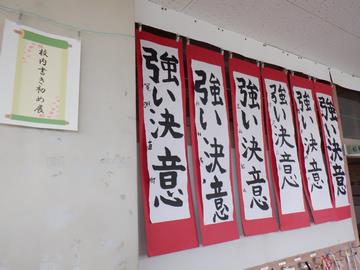 校内書き初め展
強い決意
強い決意
強い決意
強い決意
強い決意
強い決意